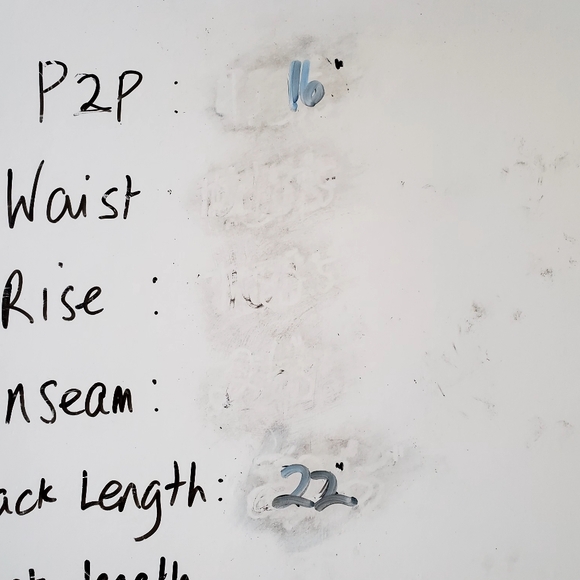 P2P : 16"
Waist
Rise :
nseam :
ack Length : 22"
length